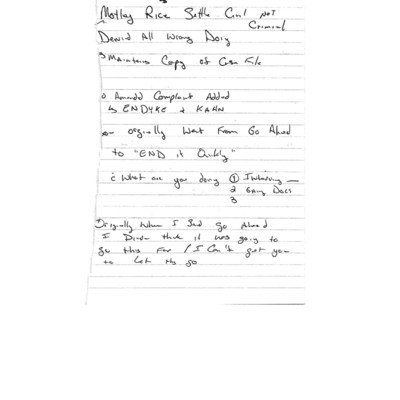 Motley Rice Settle Civil NOT
Criminal
Denied All Wrong Doing
Maintains Copy of Case File
Amended Complaint Added
ENDYKE + KAHN
originally Went From Go Ahead
to "END it Quickly"
What are you doing ① Interviewing
2 Going Docs
3
Originally When I Said Go Ahead
I Didn't think it was going to
go this Far / I Can't get you
to Let No go